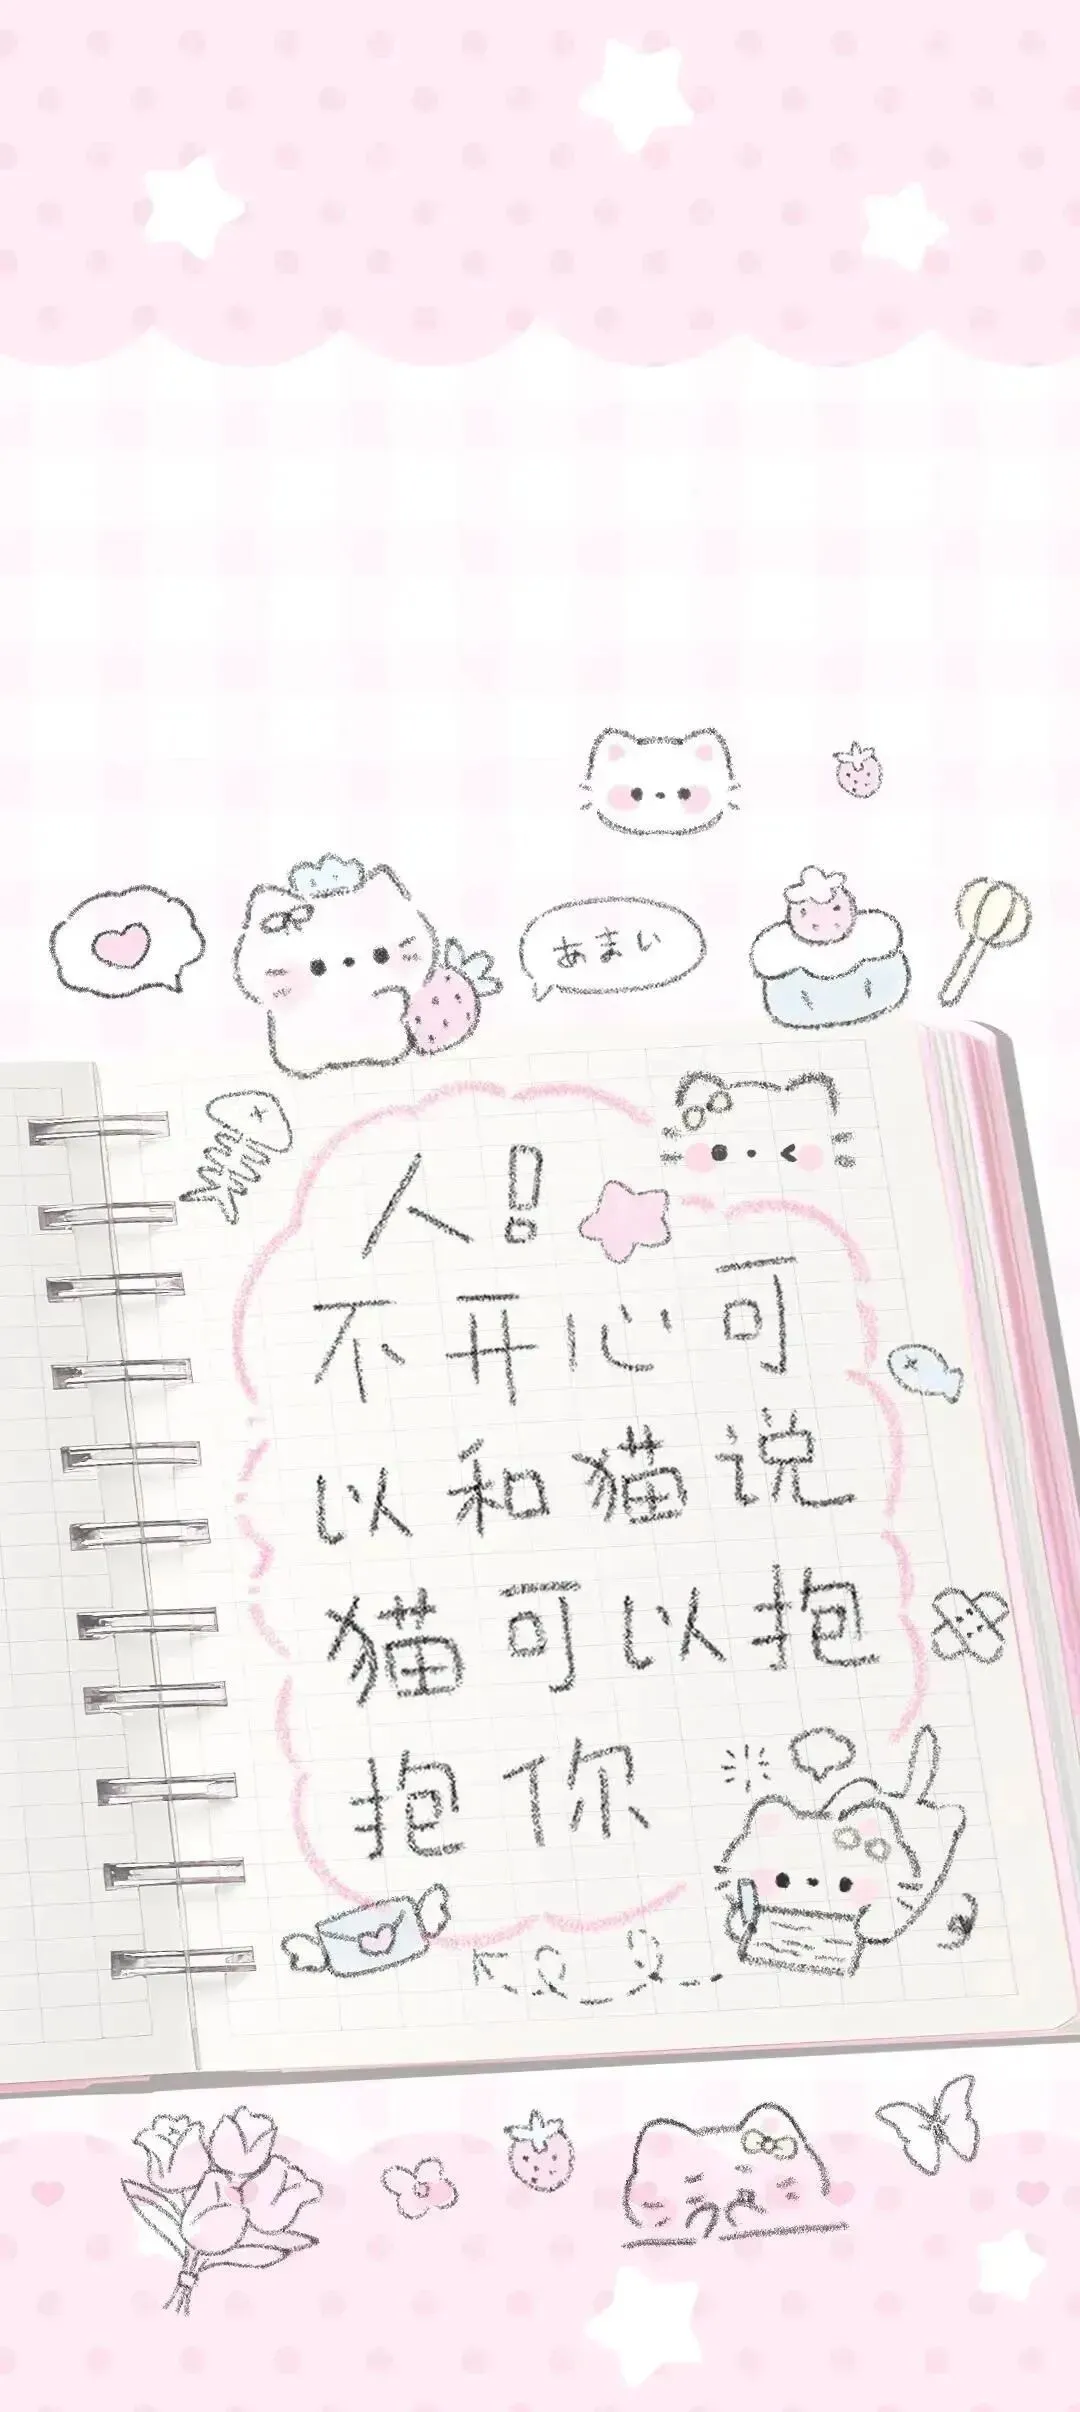 あまい
人！
不开心可
以和猫说
猫可以抱
抱你